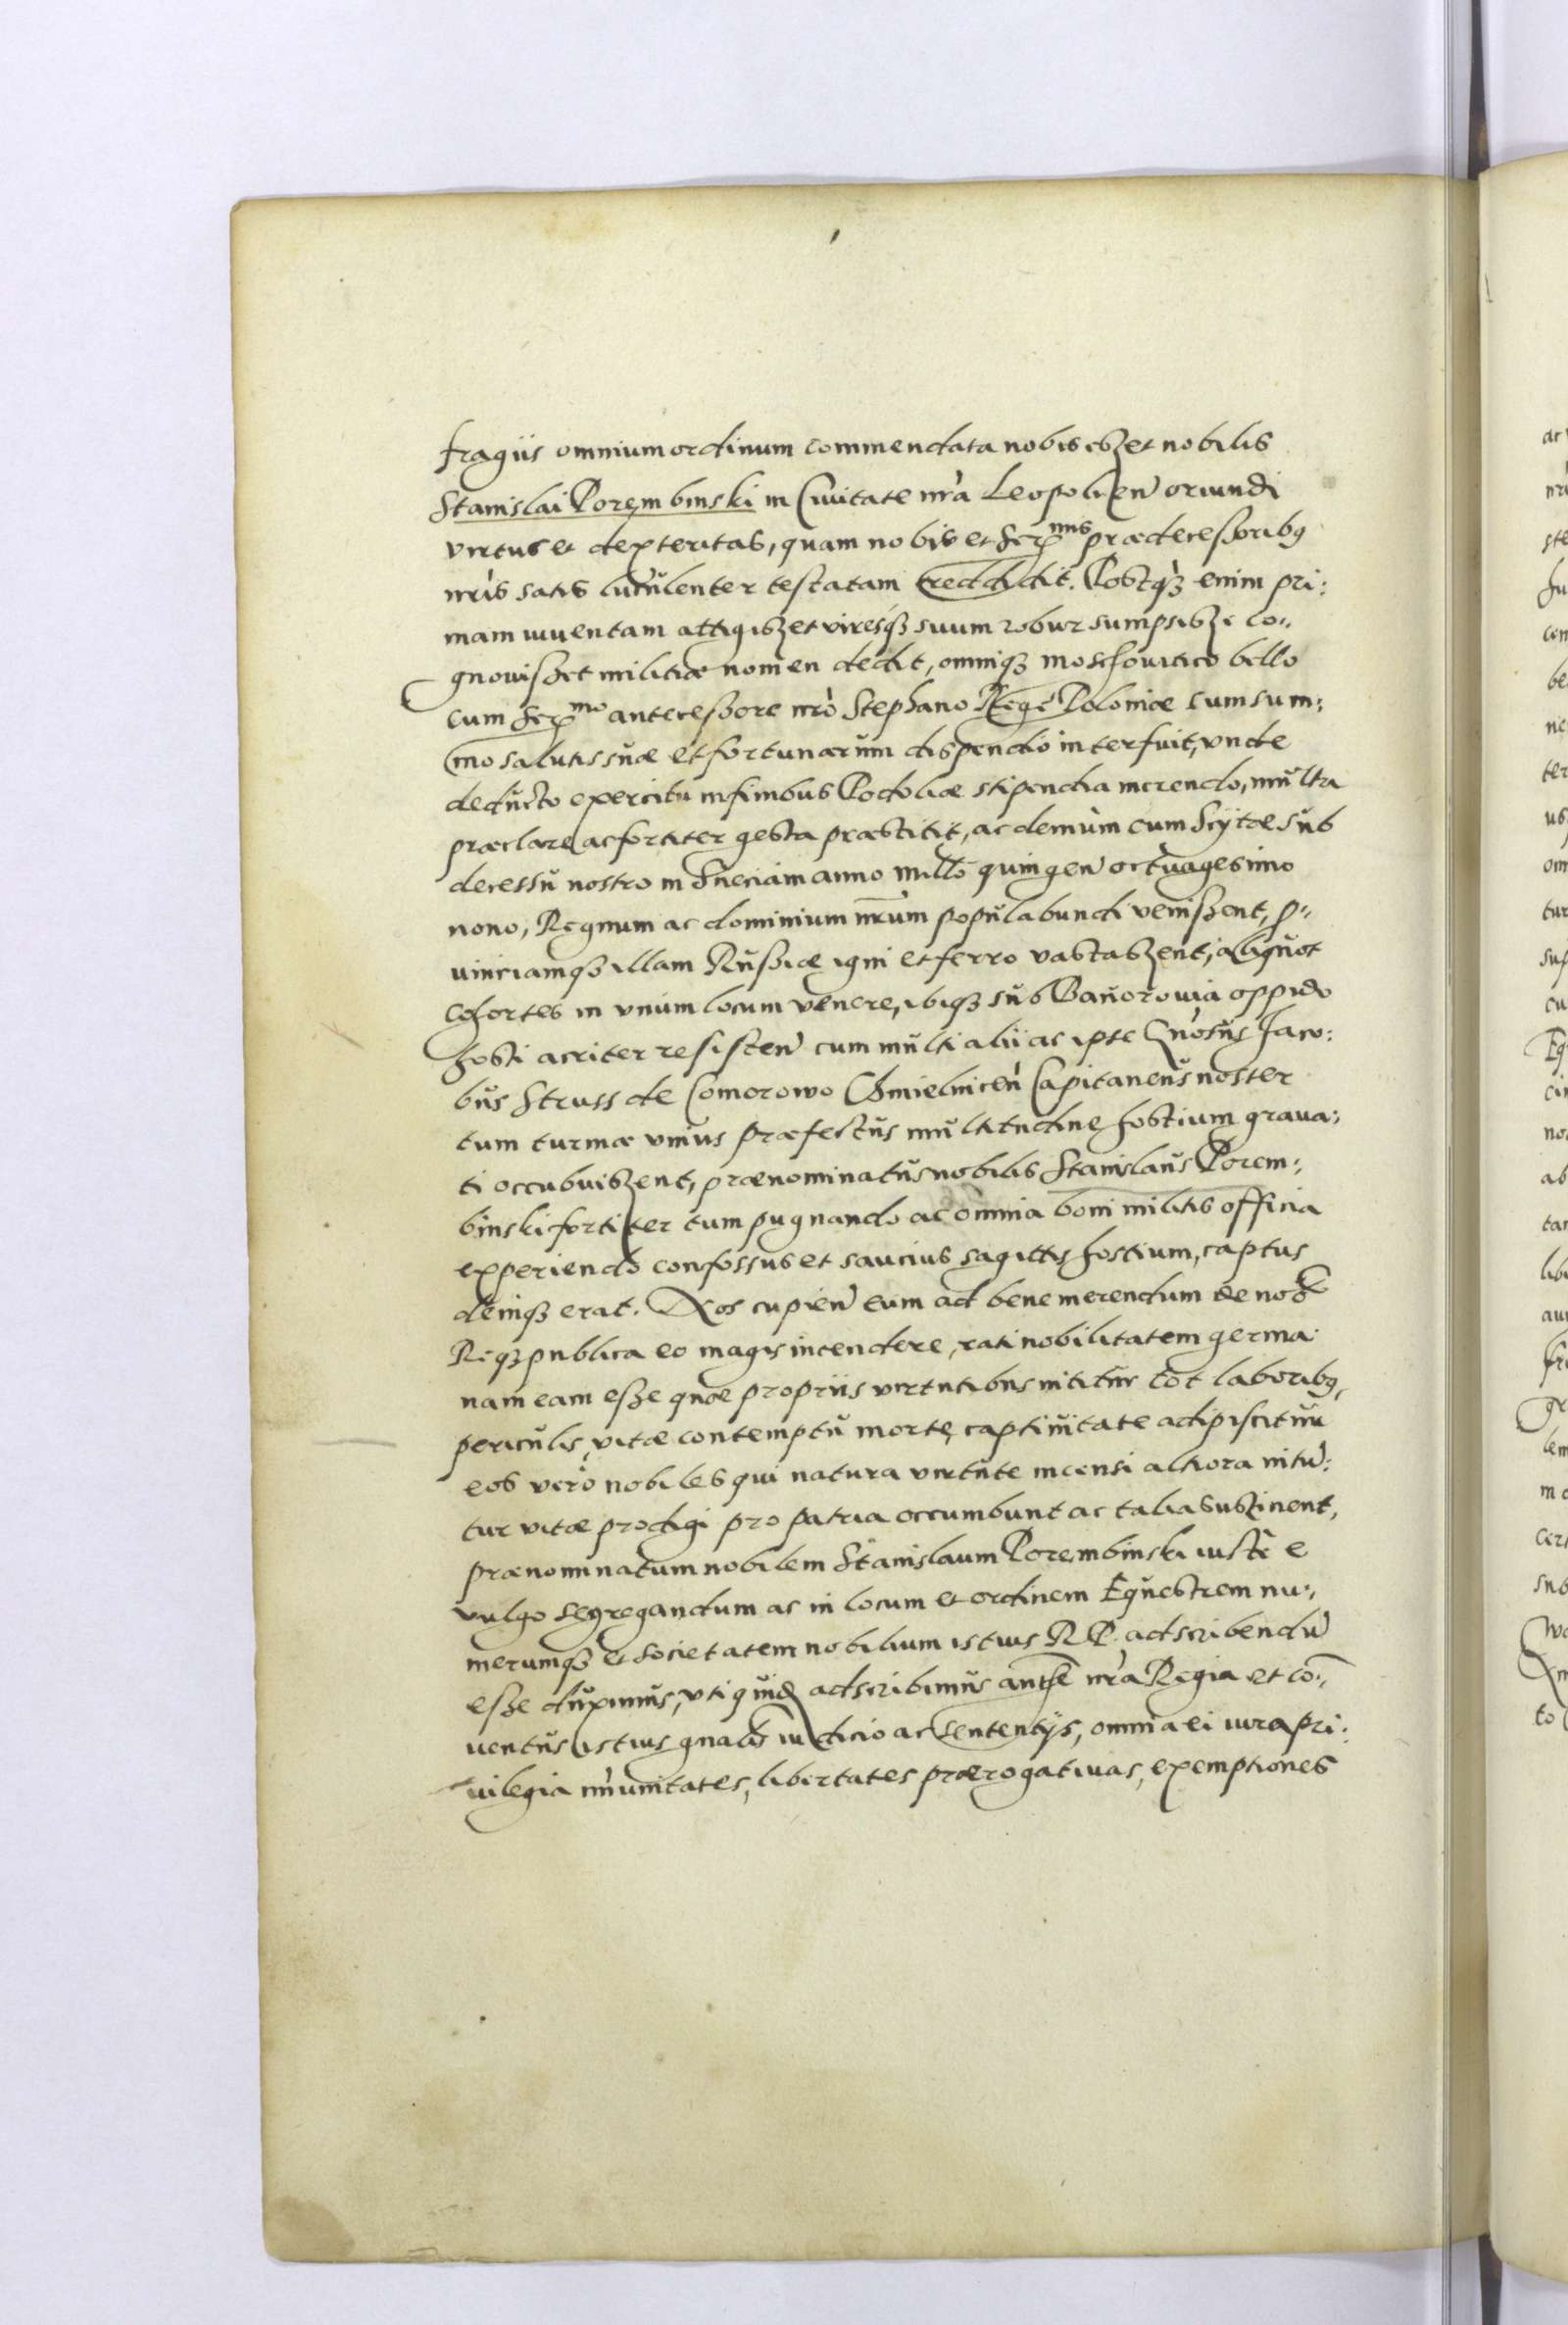 fragiis omnium ordinum commendata nobis eßet nobilis
Stanislai Porembinski in Ciuitate nrã Leopolien̄ oriundi
virtus et dexteritas, quam nobis et Serᵐⁱˢ prædeceßoribꝫ
nrìs satis luculenter testatam reddidit. Postqꝫ enim pri:
mam iuuentam attigißet viresqꝫ suum robur sumpsiße co:
gnouißet militiæ nomen dedit, omniqꝫ moschouitico bello
cum Serᵐᵒ anteceßore nrò Stephano Rege Poloniæ cum sum:
mo salutis suæ et fortunarum dispendio interfuit, vnde
deducto exercitu in finibus Podoliæ stipendia merendo, multa
præclare ac fortiter gesta præstitit, ac demum cum Scytæ sub
decessu nostro in Sueciam anno millō quingen̄ octuagesimo
nono, Regnum ac dominium nr̄um populabundi venißent, p:
uinciamqꝫ illam Rußiæ igni et ferro vastaßent, aliquot
cohortes in vnum locum venere, ibiqꝫ sub Baworowia oppido
hosti acriter resisten̄ cum multi alii ac ipse Gn̄osus Jaco:
bus Struss de Comorowo Chmielnicen̄ Capitaneus noster
tum turmæ vnius præfectus multitudine hostium graua:
ti occubuißent, prænominatus nobilis Stanislaus Porem:
binski fortiter tum pugnando ac omnia boni militis officia
experiendo confossus et saucius sagittis hostium, captus
deniqꝫ erat. Nos cupien̄ eum ad bene merendum de nob
Reqꝫ publica eo magis incendere, rati nobilitatem germa
nam eam eße quæ propriis virtutibus nititur tot laboribꝫ,
periculis, vitæ contemptu morte, captiuitate adipiscitur
eos vero nobiles qui natura virtute incensi altiora nitū:
tur vitæ prodigi pro patria occumbunt ac talia sustinent,
prænominatum nobilem Stanislaum Porembinski iustè e
vulgo segregandum ac in locum et ordinem Equestrem nu:
merumqꝫ et societatem nobilium istius R P. adscribendū
eße duximus, vti quidē adscribimus authe nrã Regia et co:
uentus istius gnalis iudicio ac sententijs, omnia ei iura pri:
uilegia īmunitates, libertates prærogatiuas, exemptiones